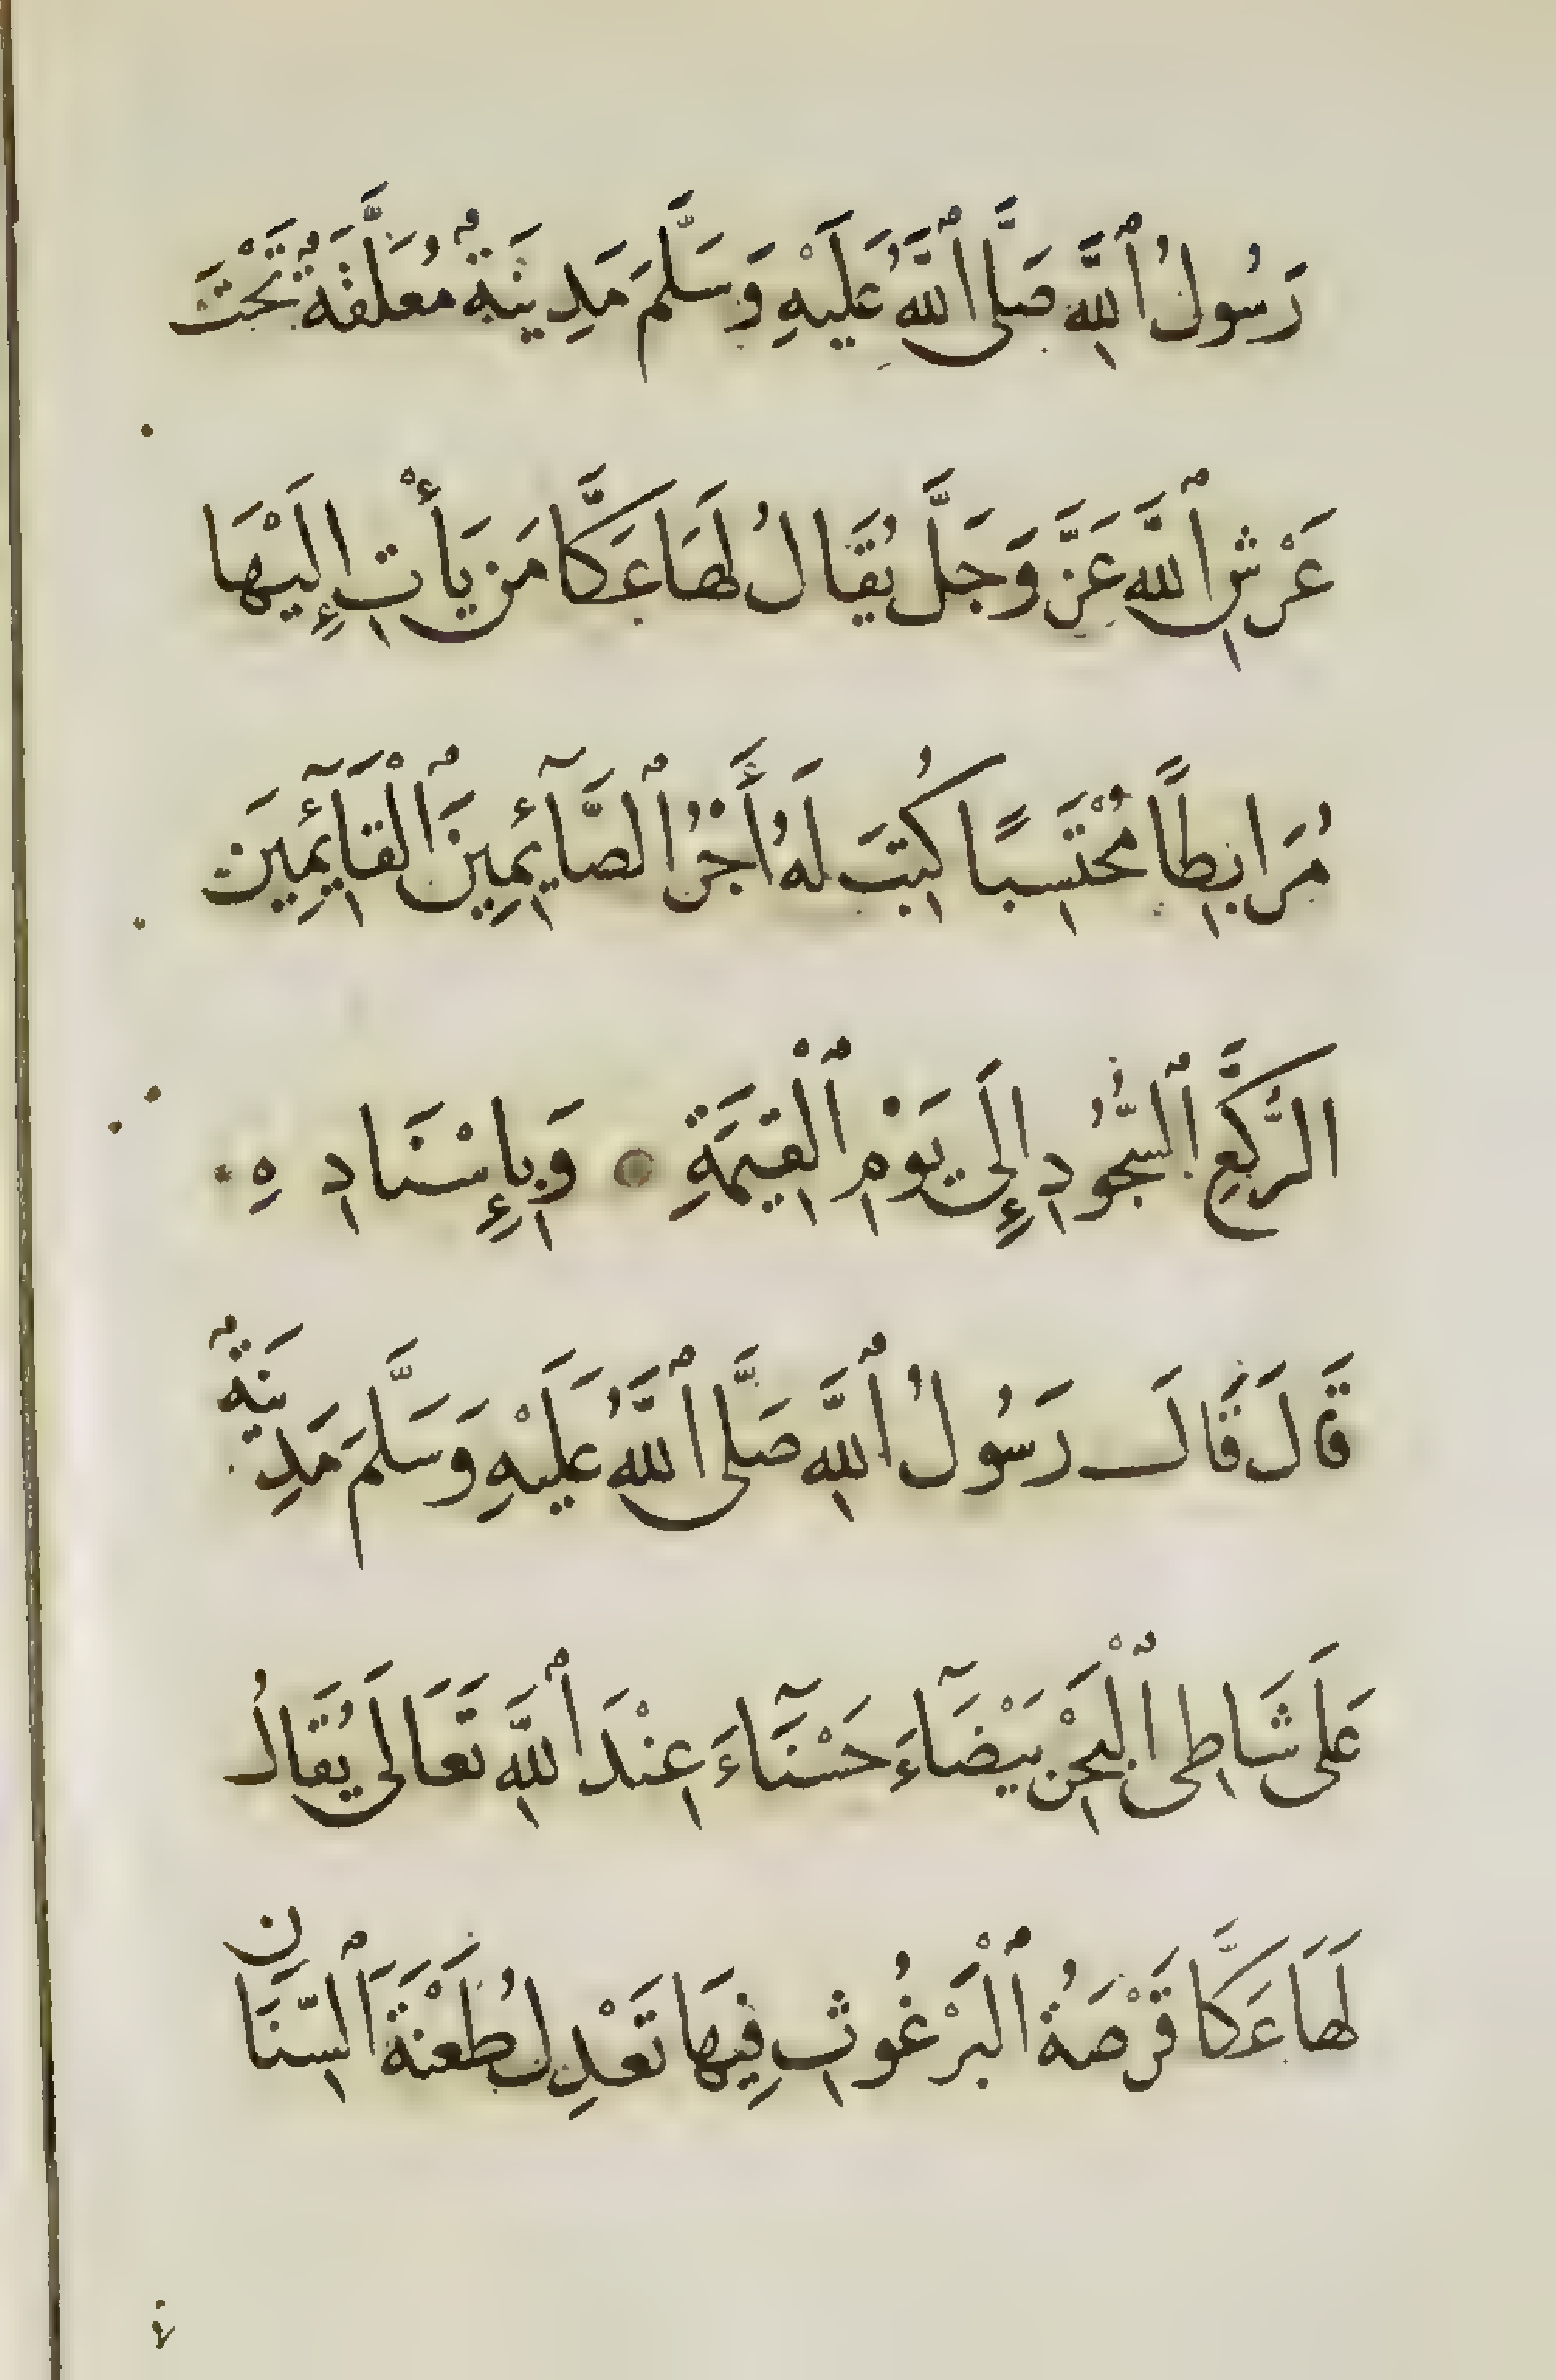 رَسُولُ ٱللَّهِ صَلَّى ٱللَّهُ عَلَيْهِ وَسَلَّمَ مَدِينَةٌ مُعَلَّقَةٌ تَحْتَ
عَرْشِ ٱللَّهِ عَزَّ وَجَلَّ يُقَالُ لَهَا عَكَّا مَن يَأْتِ إِلَيْهَا
مُرَابِطًا مُحْتَسِبًا كُتِبَ لَهُ أَجْرُ ٱلصَّآئِمِينَ ٱلْقَآئِمِينَ
الرُّكَّعِ ٱلسُّجُودِ إِلَى يَوْمِ ٱلْقِيَمَةِ وَبِإِسْنَادِهِ
قَالَ قَالَ رَسُولُ ٱللَّهِ صَلَّى ٱللَّهُ عَلَيْهِ وَسَلَّمَ مَدِينَةٌ
عَلَى شَاطِى ٱلْبَحْرِ بَيْضَآءَ حَسْنَآءَ عِنْدَ ٱللَّهِ تَعَالَى يُقَالُ
لَهَا عَكَّا قَرْصَةُ ٱلْبَرْغُوثِ فِيهَا تَعْدِلُ طَعْنَةَ ٱلسِّنَانِ